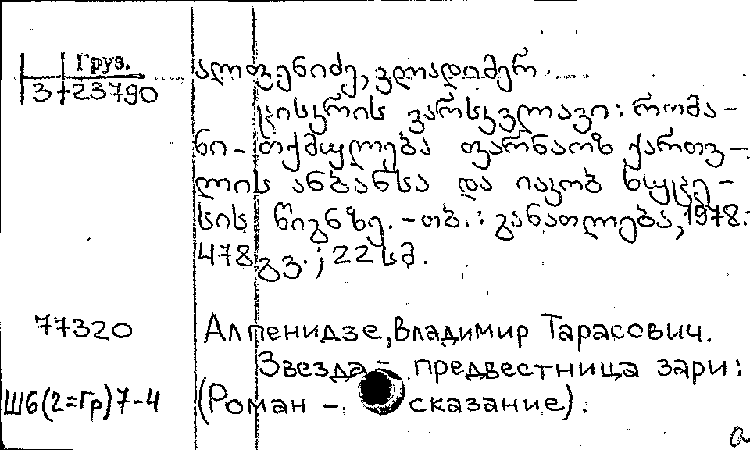 Груз.
3-23790
ალფენიძე, ვლადიმერ.
ცისკრის ვარსკვლავი: რომა-
ნი-თქმულება ფარნაოზ ქართვ-
ლის ანბანსა და იაკობ ხუცე-
სის წიგნზე. -თბ.: განათლება, 1978.
478 გვ.; 22 სმ.
77320
Алпенидзе, Владимир Тарасович.
Звезда - предвестница зари:
Ш6(2=Гр)7-4
(Роман - сказание).
a